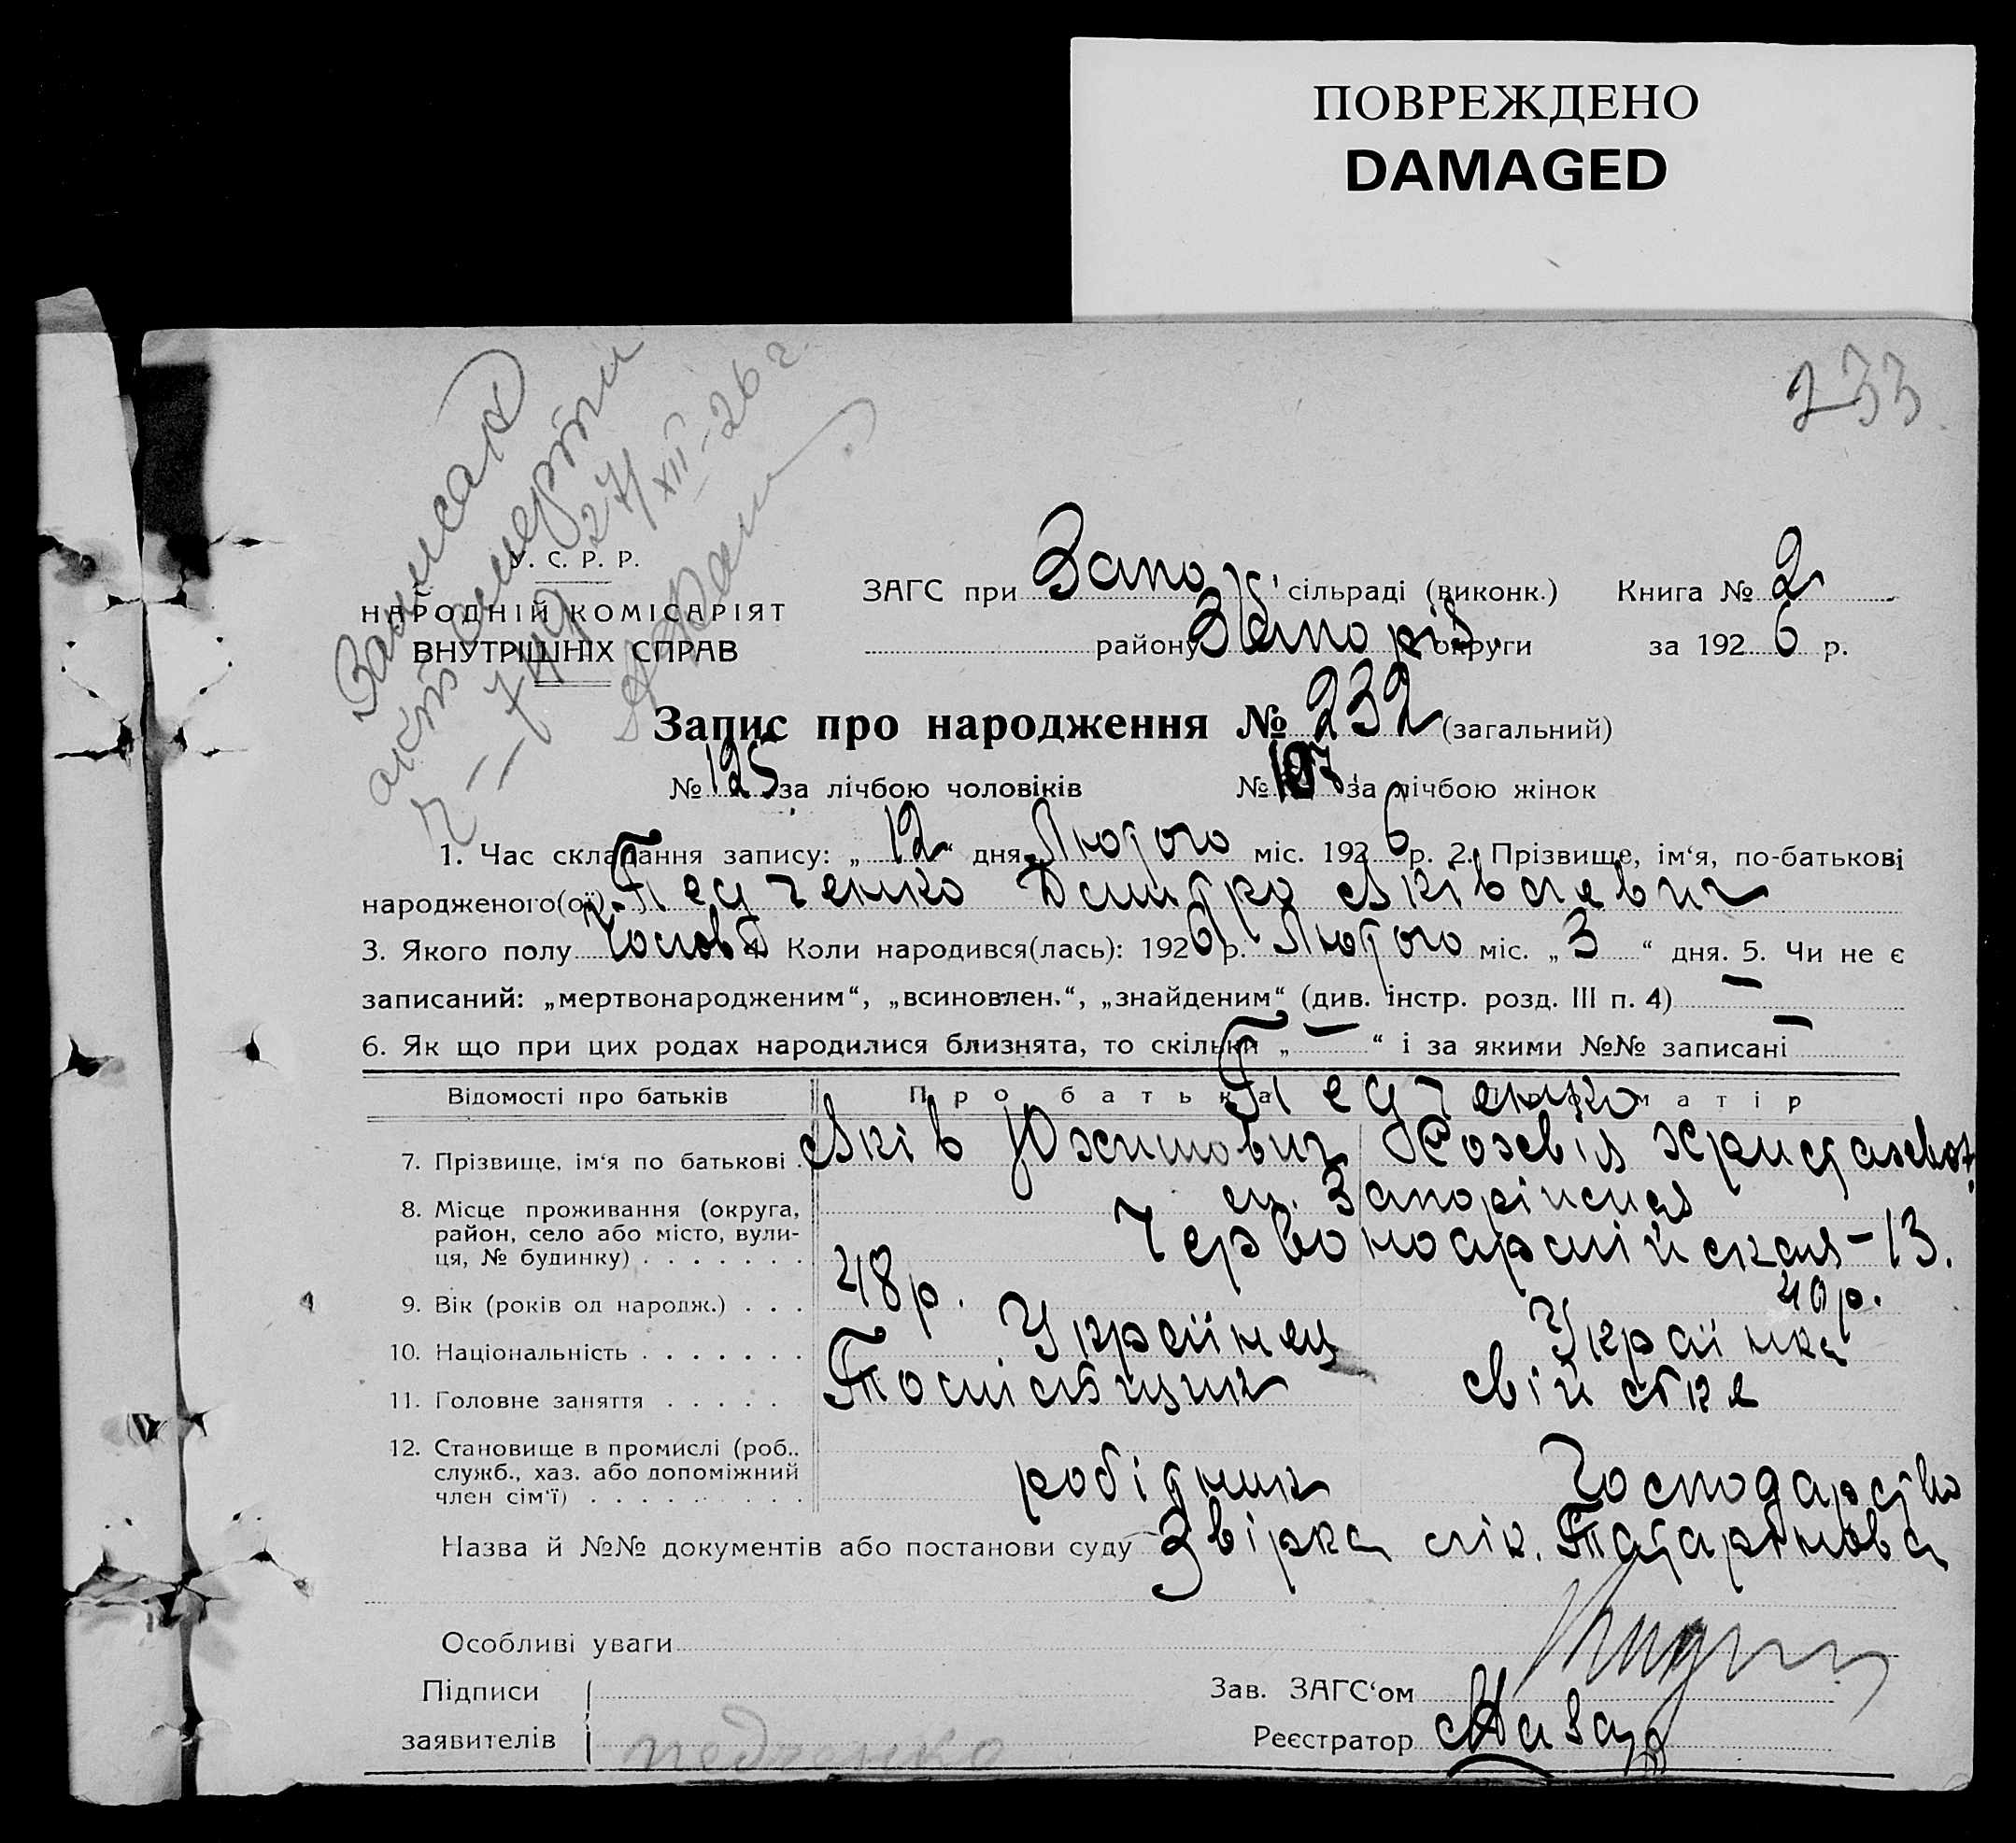 ПОВРЕЖДЕНО
DAMAGED
233
Записан
акт смерти
27/XII-26 г.
У. С. Р. Р.
НАРОДНІЙ КОМІСАРІЯТ
ВНУТРІШНІХ СПРАВ
ЗАГС при Запор. сільраді (виконк.) Книга № 2
району Запоріз. округи за 1926 р.
Запис про народження № 232 (загальний)
№ 125 за лічбою чоловіків № 107 за лічбою жінок
1. Час складання запису: „12“ дня Лютого міс. 1926 р. 2. Прізвище, ім‘я, по-батькові
народженого(ої) Педченко Дмитро Яківлевич
3. Якого полу Чолов. 4. Коли народився(лась): 1926 р. Лютого міс. „3“ дня. 5. Чи не є
записаний: „мертвонародженим“, „всиновлен.“, „знайденим“ (див. інстр. розд. III п. 4) —
6. Як що при цих родах народилися близнята, то скільки „—“ і за якими №№ записані —
Відомості про батьків Про батька Про матір
Педченко
7. Прізвище, ім‘я по батькові . Яків Юхимович
8. Місце проживання (округа, район, село або місто, вулиця, № будинку) . . . . . . . м. Запоріжжя
Червоноармійская-13.
9. Вік (років од народж.) . . . 48 р. 40 р.
10. Національність . . . . . . . Українец Українка
11. Головне заняття . . . . . свійстке
12. Становище в промислі (роб.. служб., хаз. або допоміжний член сім‘ї) . . . . . . . . . робітник Господарство
Назва й №№ документів або постанови суду Звірка лік. Татаринова
Особливі уваги
Підписи
заявителів педченко
Зав. ЗАГС‘ом
Реєстратор